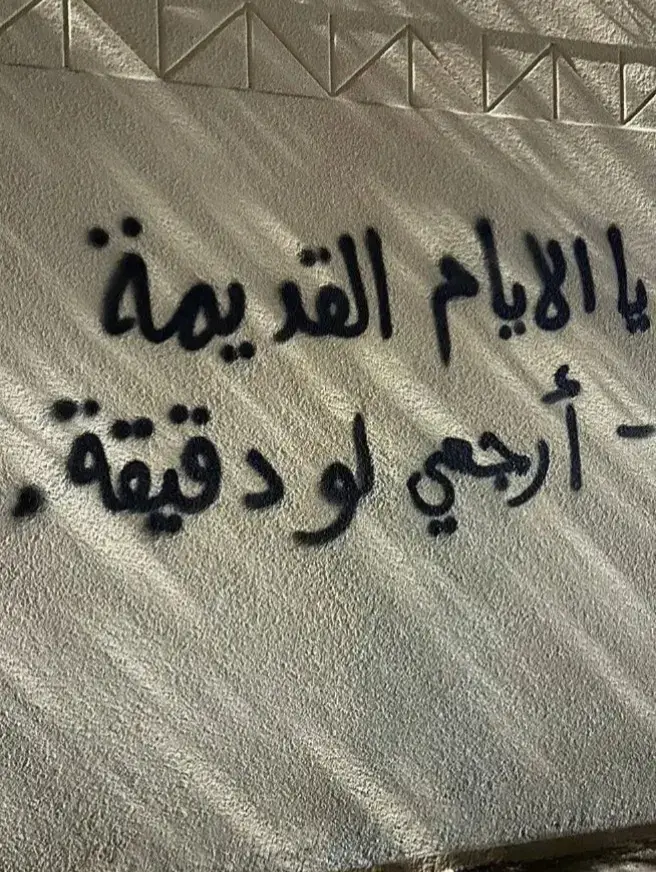 يا الايام القديمة
- أرجعي لو دقيقة.